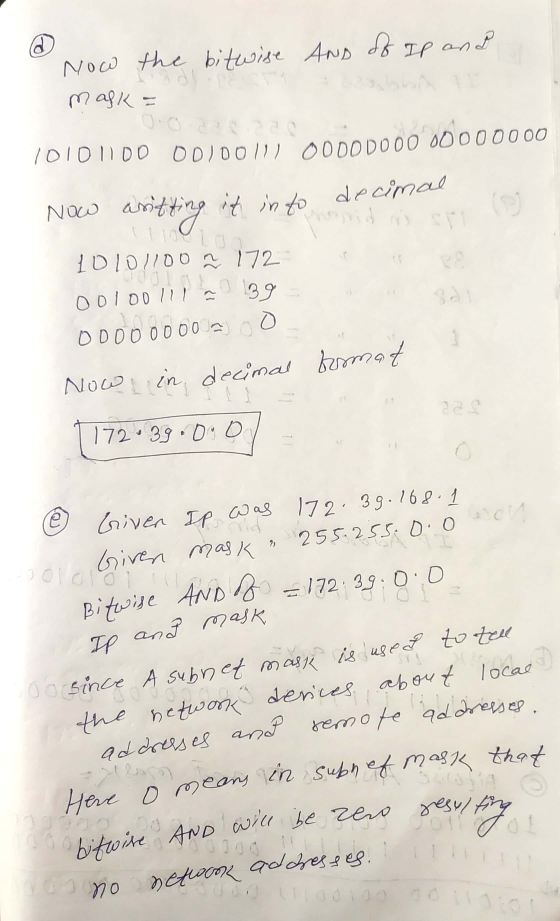 (d) Now the bitwise AND of IP and
mask =
10101100 00100111 00000000 00000000
Now writting it into decimal
10101100 ≈ 172
00100111 ≈ 39
00000000 ≈ 0
Now in decimal format
172.39.0.0
(e) Given IP was 172.39.168.1
Given mask " 255.255.0.0
Bitwise AND of = 172.39.0.0
IP and mask
since A subnet mask is used to tell
the network devices about local
addresses and remote addresses.
Here 0 means in subnet mask that
bitwise AND will be zero resulting
no network addresses.